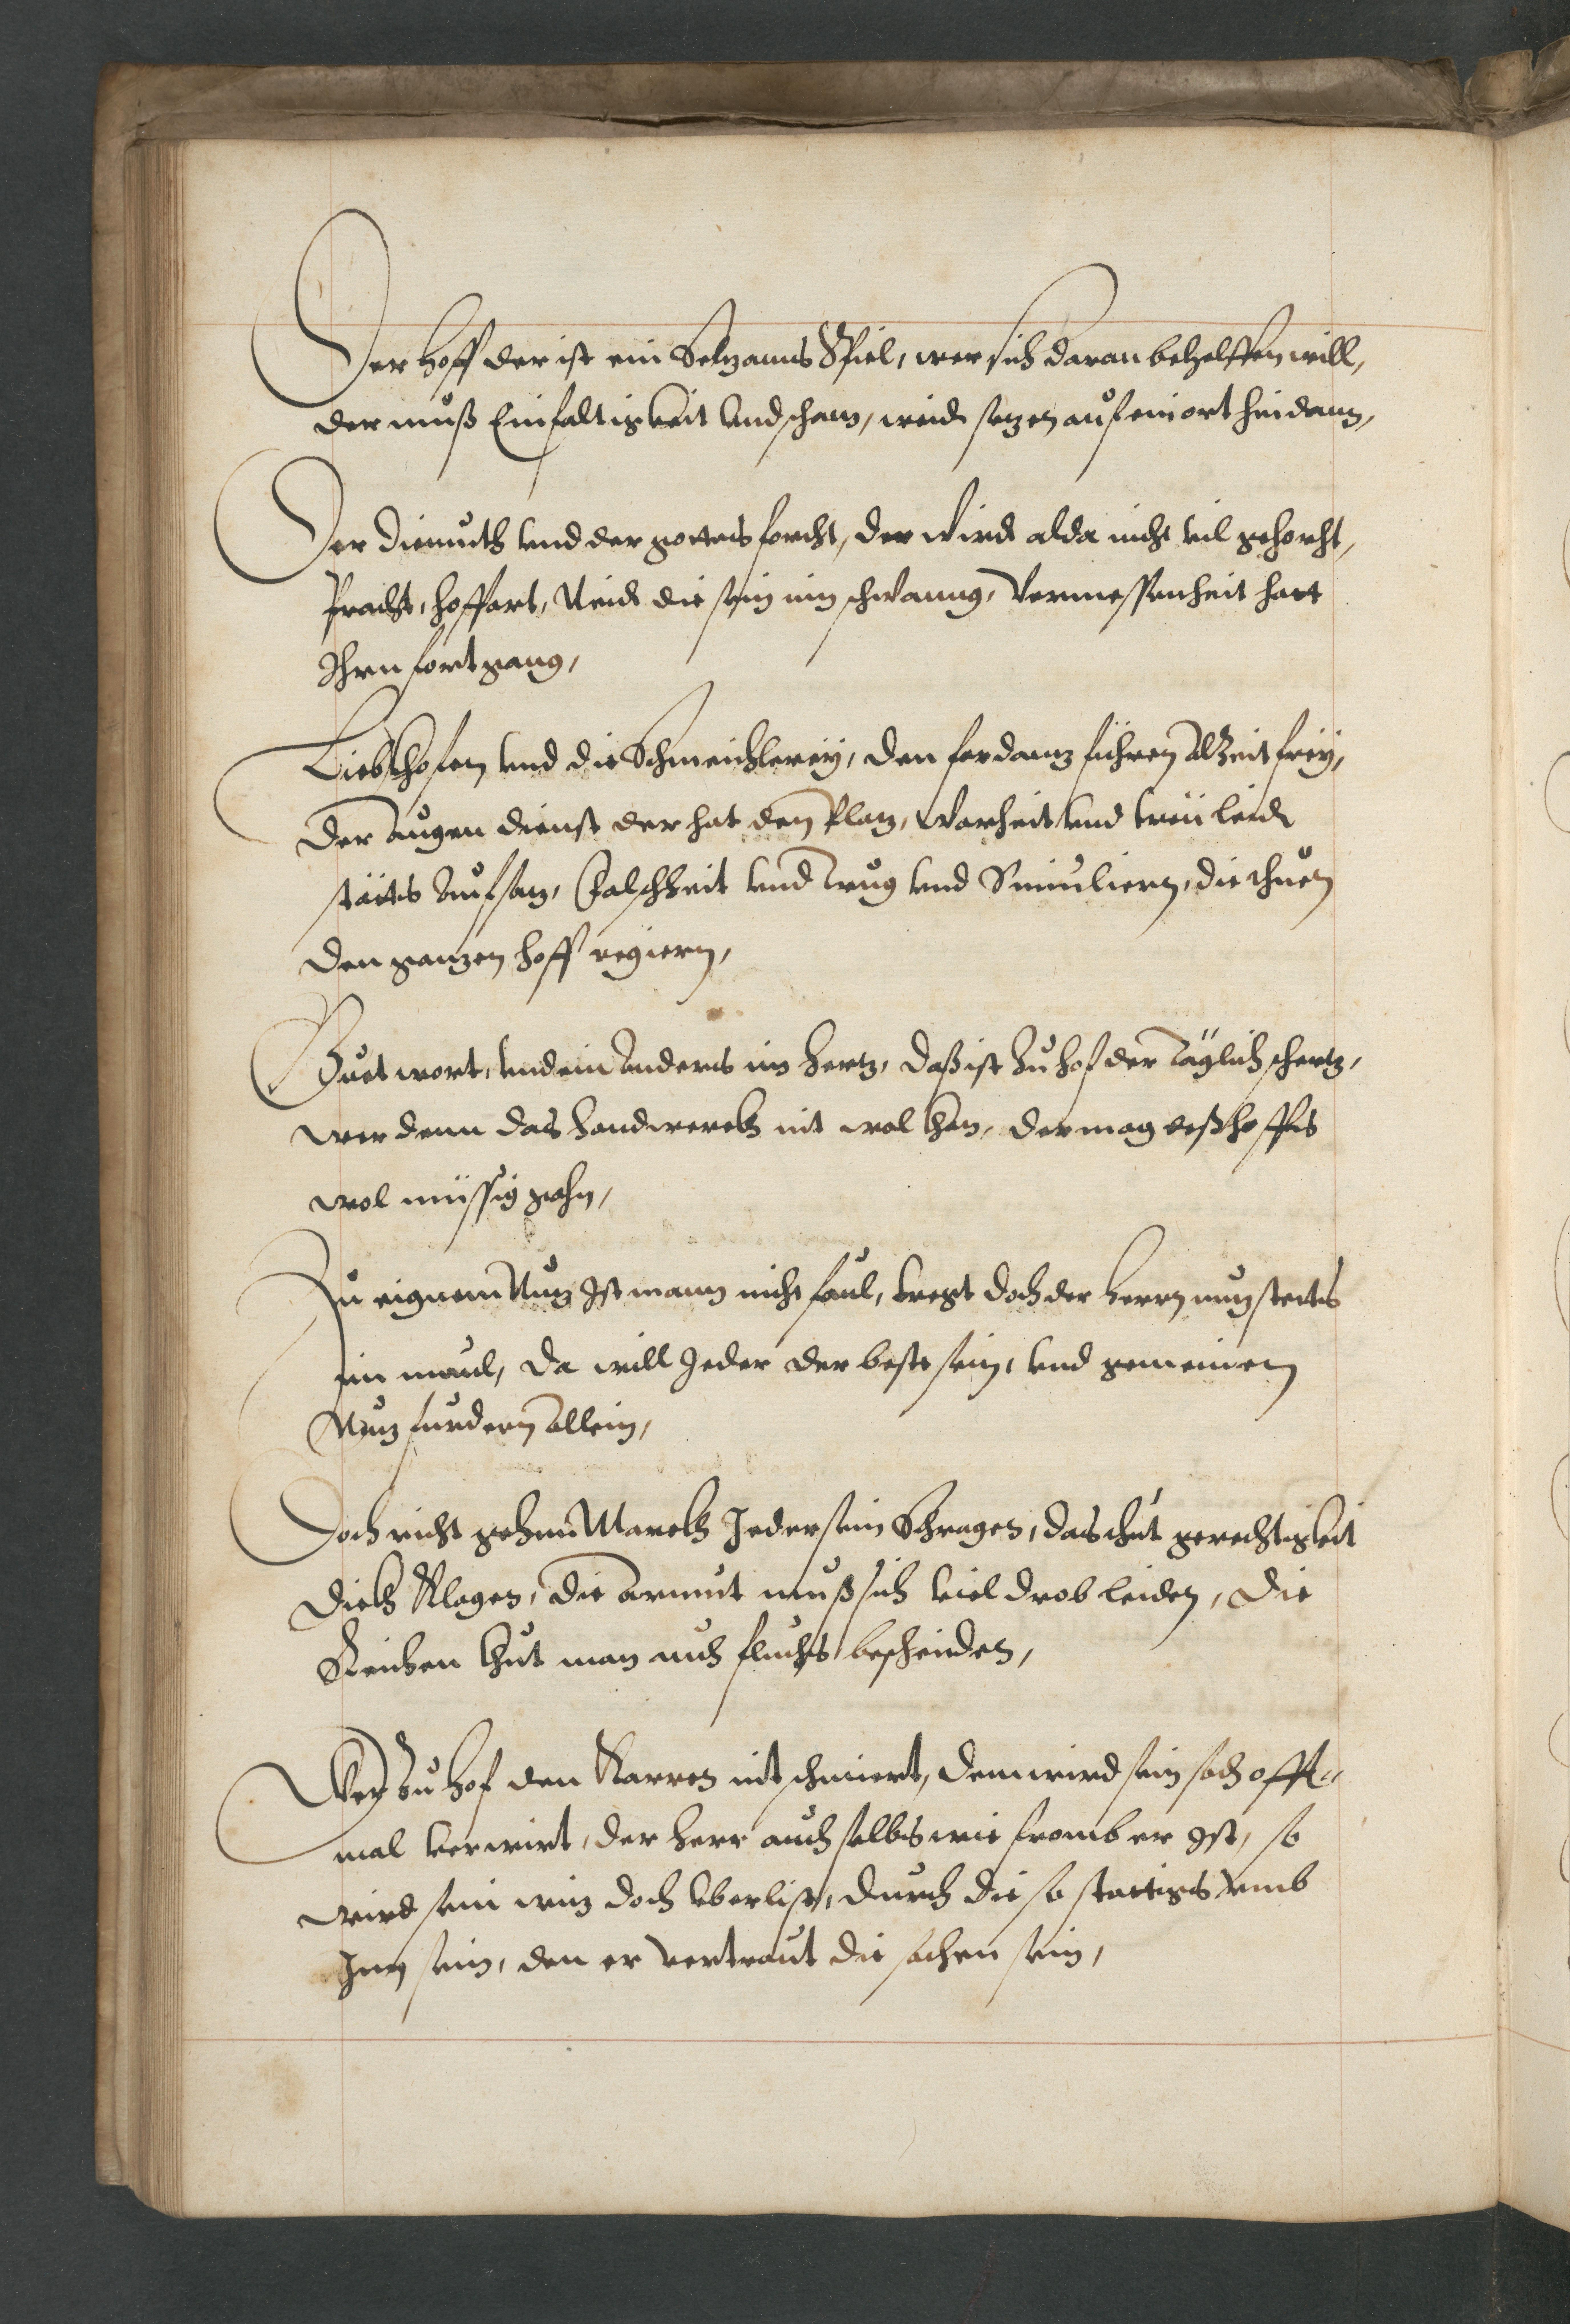 Der hoff der ist ein Seltzames Spiel, wer sich daran behelffen will,
der muß Einfaltigkeit und scham, weid setzen auf ein ort hindann,
Der diemuth und der gottes forcht, der wird alda nicht vil gehorcht,
Pracht, hoffart, Neid die sein im schwanng, Vermessenheit hatt
Ihren fortgang,
Liebkhosen und die Schmeichlerey, den fordantz führen Alzeit frey,
Der Augen dienst der hat den Platz, Warheit und treü leid
stätts Aufsatz, Falschheit und Trug und Simuliern, die thuen
den gantzen hoff regiern,
Guet wort, und ein Anders im hertz, daß ist zu hof der Täglich schertz,
wer denn das handwerckh nit wol khan, der mag deß hoffes
wol müssig gahn,
Zu eignem Nutz Ist mann nicht faul, tregt doch der herrn nutz stetts
im maul, da will Jeder der beste sein, und gemeinen
Nutz furdern Allein,
Doch richt gehn Marckh Jeder sein Schragen, das thut gerechtigkeit
dickh klagen, die armut muß sich viel drob leiden, die
Reichen thut man auch fluchs bescheiden,
Wer zu hof den Karren nit schmiert, dem wird sein sach offt-
mal verwirt, der herr auch selbs wie fromb er Ist, so
wird sein witz doch vberlist, durch die so stettigs vmb
Inn sein, den er vertraut die sachen sein,